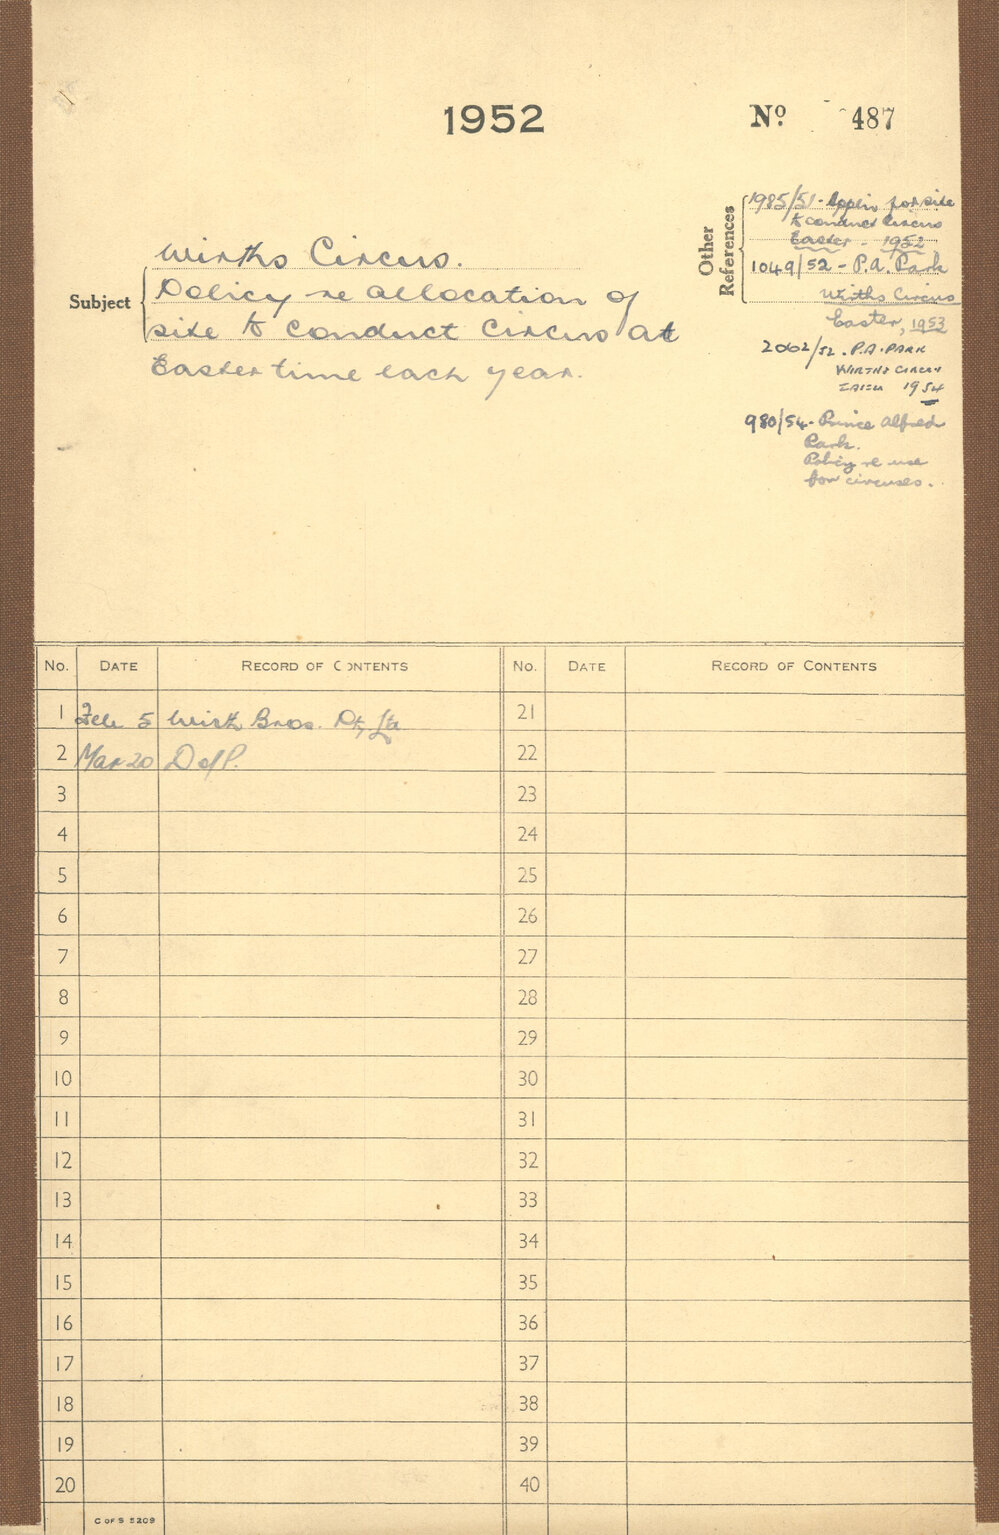 1952
Nº 487
Other References
1985/51 - Applin for site
to conduct Circus
Easter - 1952
1049/52 - P.A. Park
Wirths Circus
Easter, 1953
2002/52 - P.A. PARK
WIRTHS CIRCUS
1954
980/54 - Prince Alfred
Park.
Policy re use
for circuses.
Subject
Wirths Circus.
Policy re allocation of
site to conduct Circus at
Easter time each year.
No. DATE RECORD OF CONTENTS No. DATE RECORD OF CONTENTS
1 Feb 5 Wirth Bros. Pty Ltd 21
2 Mar 20 D of P. 22
3 23
4 24
5 25
6 26
7 27
8 28
9 29
10 30
11 31
12 32
13 33
14 34
15 35
16 36
17 37
18 38
19 39
20 40
C OF S 5209